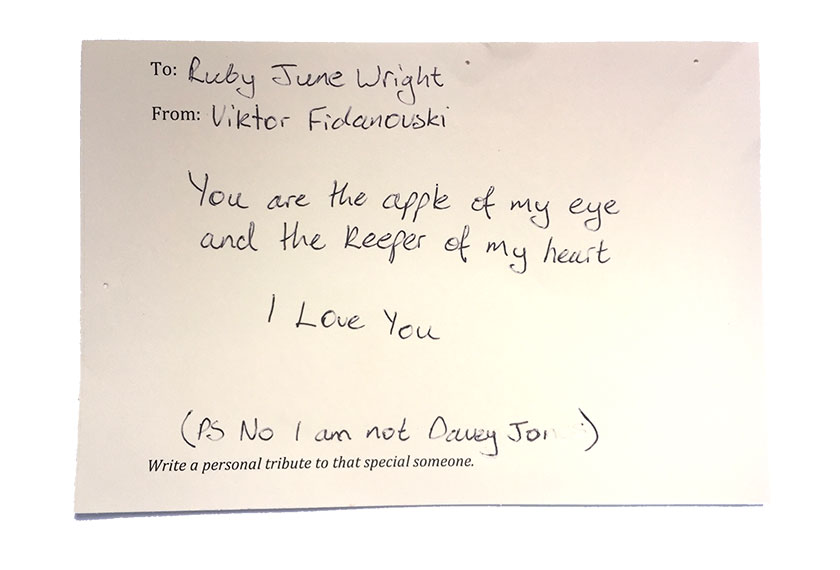 To: Ruby June Wright
From: Viktor Fidanovski
You are the apple of my eye
and the keeper of my heart
I Love You
(PS No I am not Davey )
Write a personal tribute to that special someone.